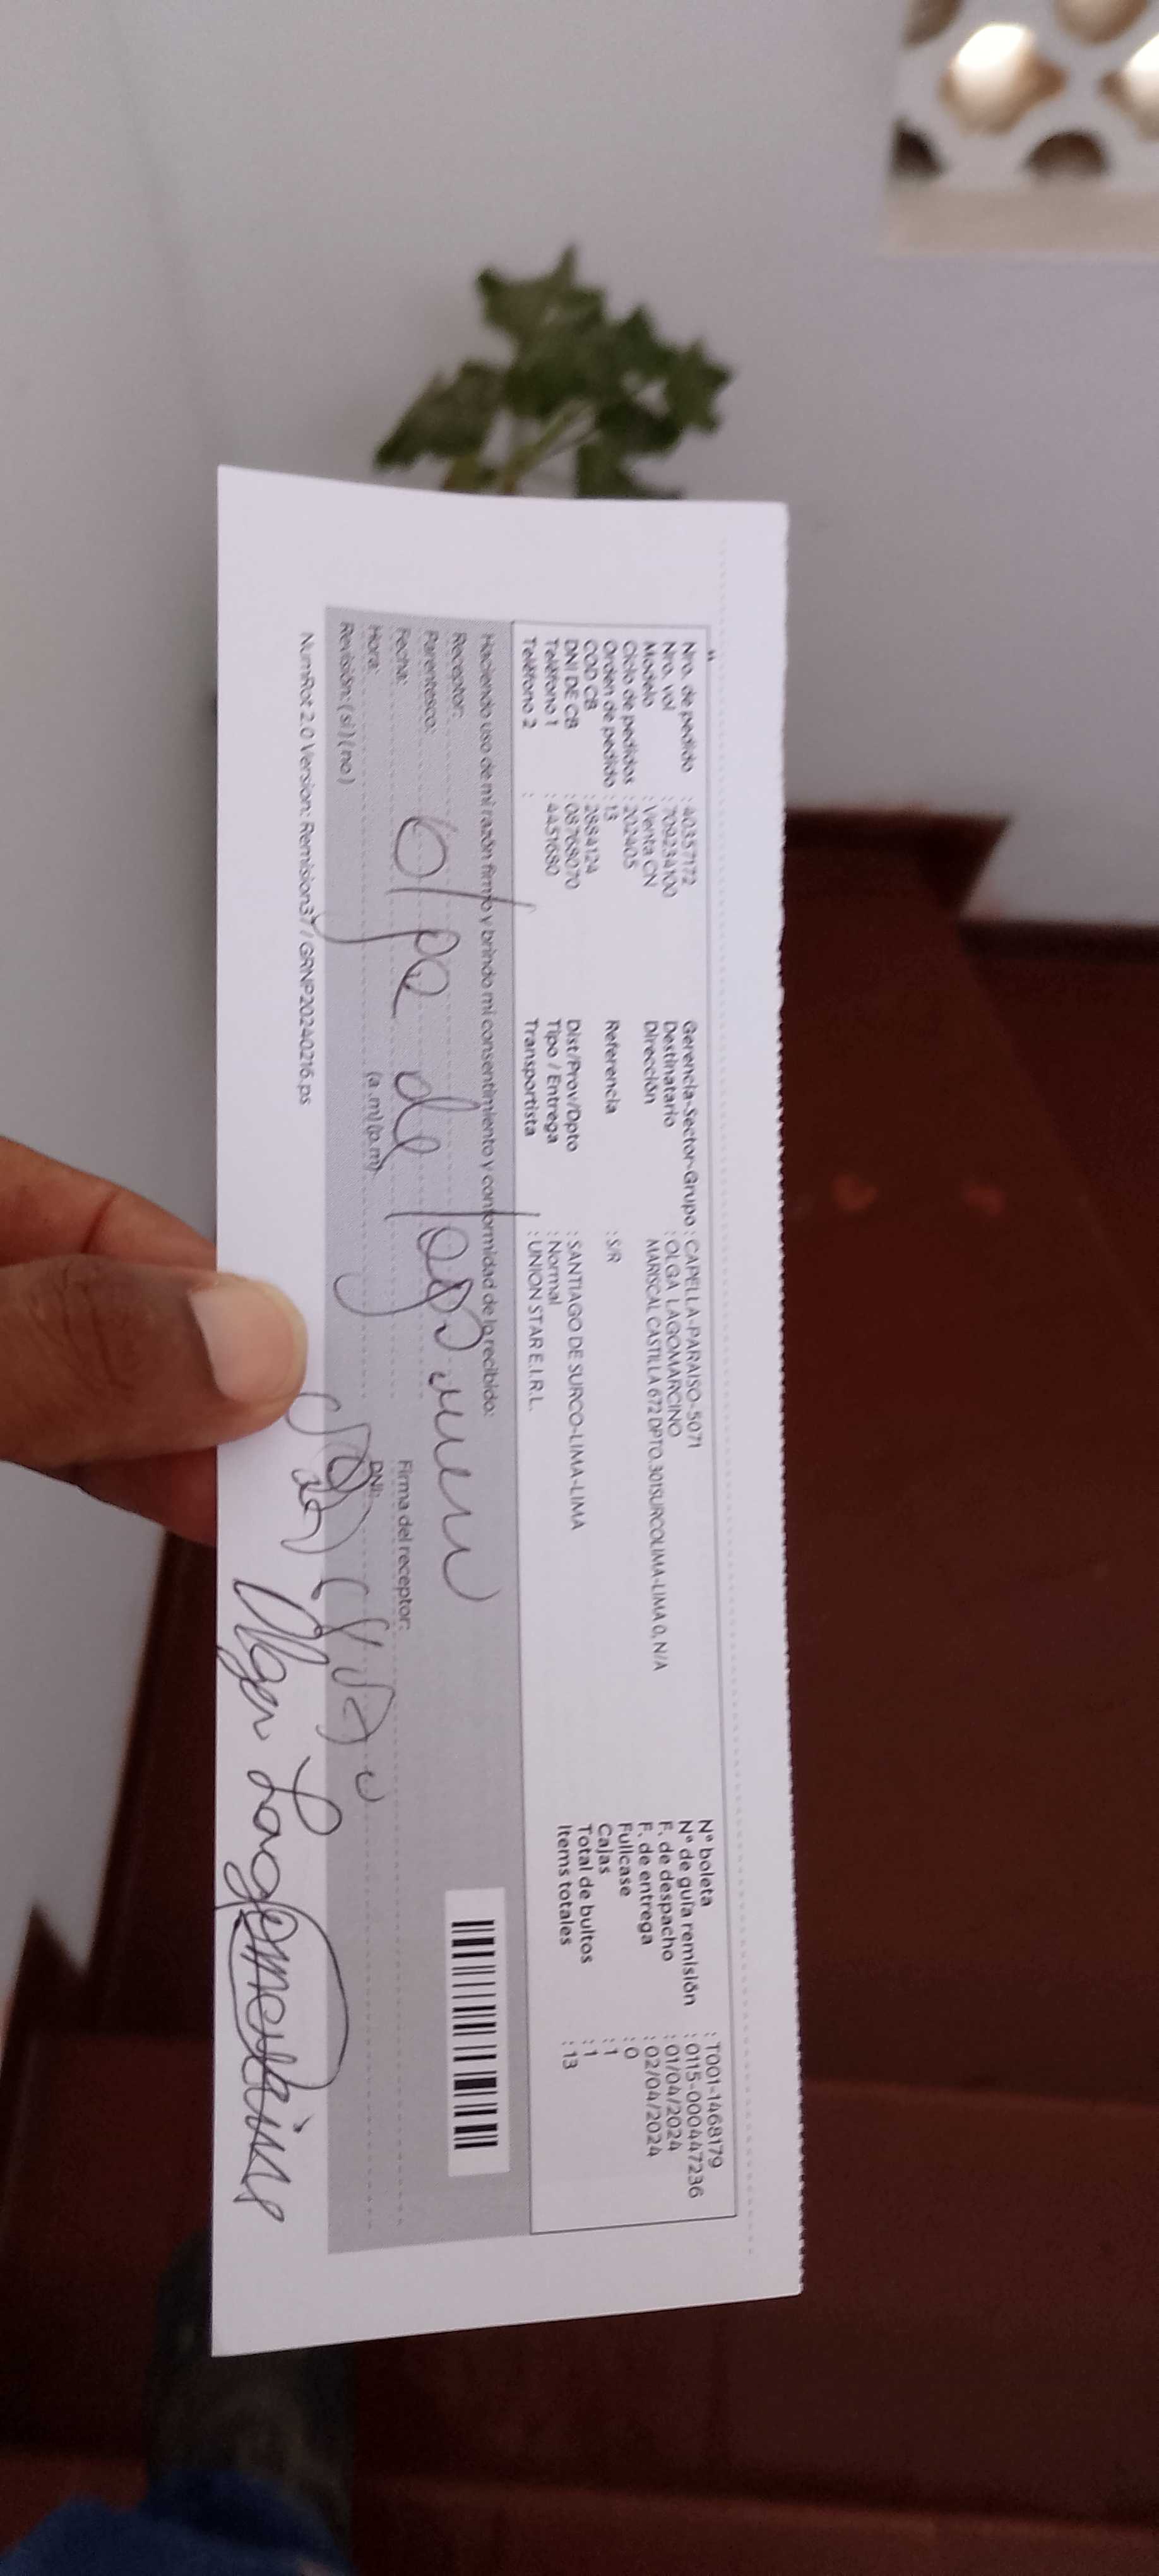 Nro. de pedido : 40357172
Nro. vol : 709234100
Modelo : Venta CN
Ciclo de pedidos : 202405
Orden de pedido : 13
COD CB : 2884124
DNI DE CB : 08768070
Teléfono 1 : 4451680
Teléfono 2 :
Gerencia-Sector-Grupo : CAPELLA-PARAISO-5071
Destinatario : OLGA LAGOMARCINO
Dirección MARISCAL CASTILLA 672 DPTO.301SURCOLIMA-LIMA 0, N/A
Referencia : S/R
Dist/Prov/Dpto : SANTIAGO DE SURCO-LIMA-LIMA
Tipo / Entrega : Normal
Transportista : UNION STAR E.I.R.L.
N° boleta : T001-1468179
N° de guía remisión : 0115-000447236
F. de despacho : 01/04/2024
F. de entrega : 02/04/2024
Fullcase : 0
Cajas : 1
Total de bultos : 1
Items totales : 13
Haciendo uso de mi razón firmo y brindo mi consentimiento y conformidad de lo recibido:
Receptor:
Parentesco:
Fecha:
Hora: (a.m) (p.m)
Revisión: (si) (no)
Firma del receptor:
DNI:
NumRot 2.0 Version: Remision37 / GRNP20240216.ps